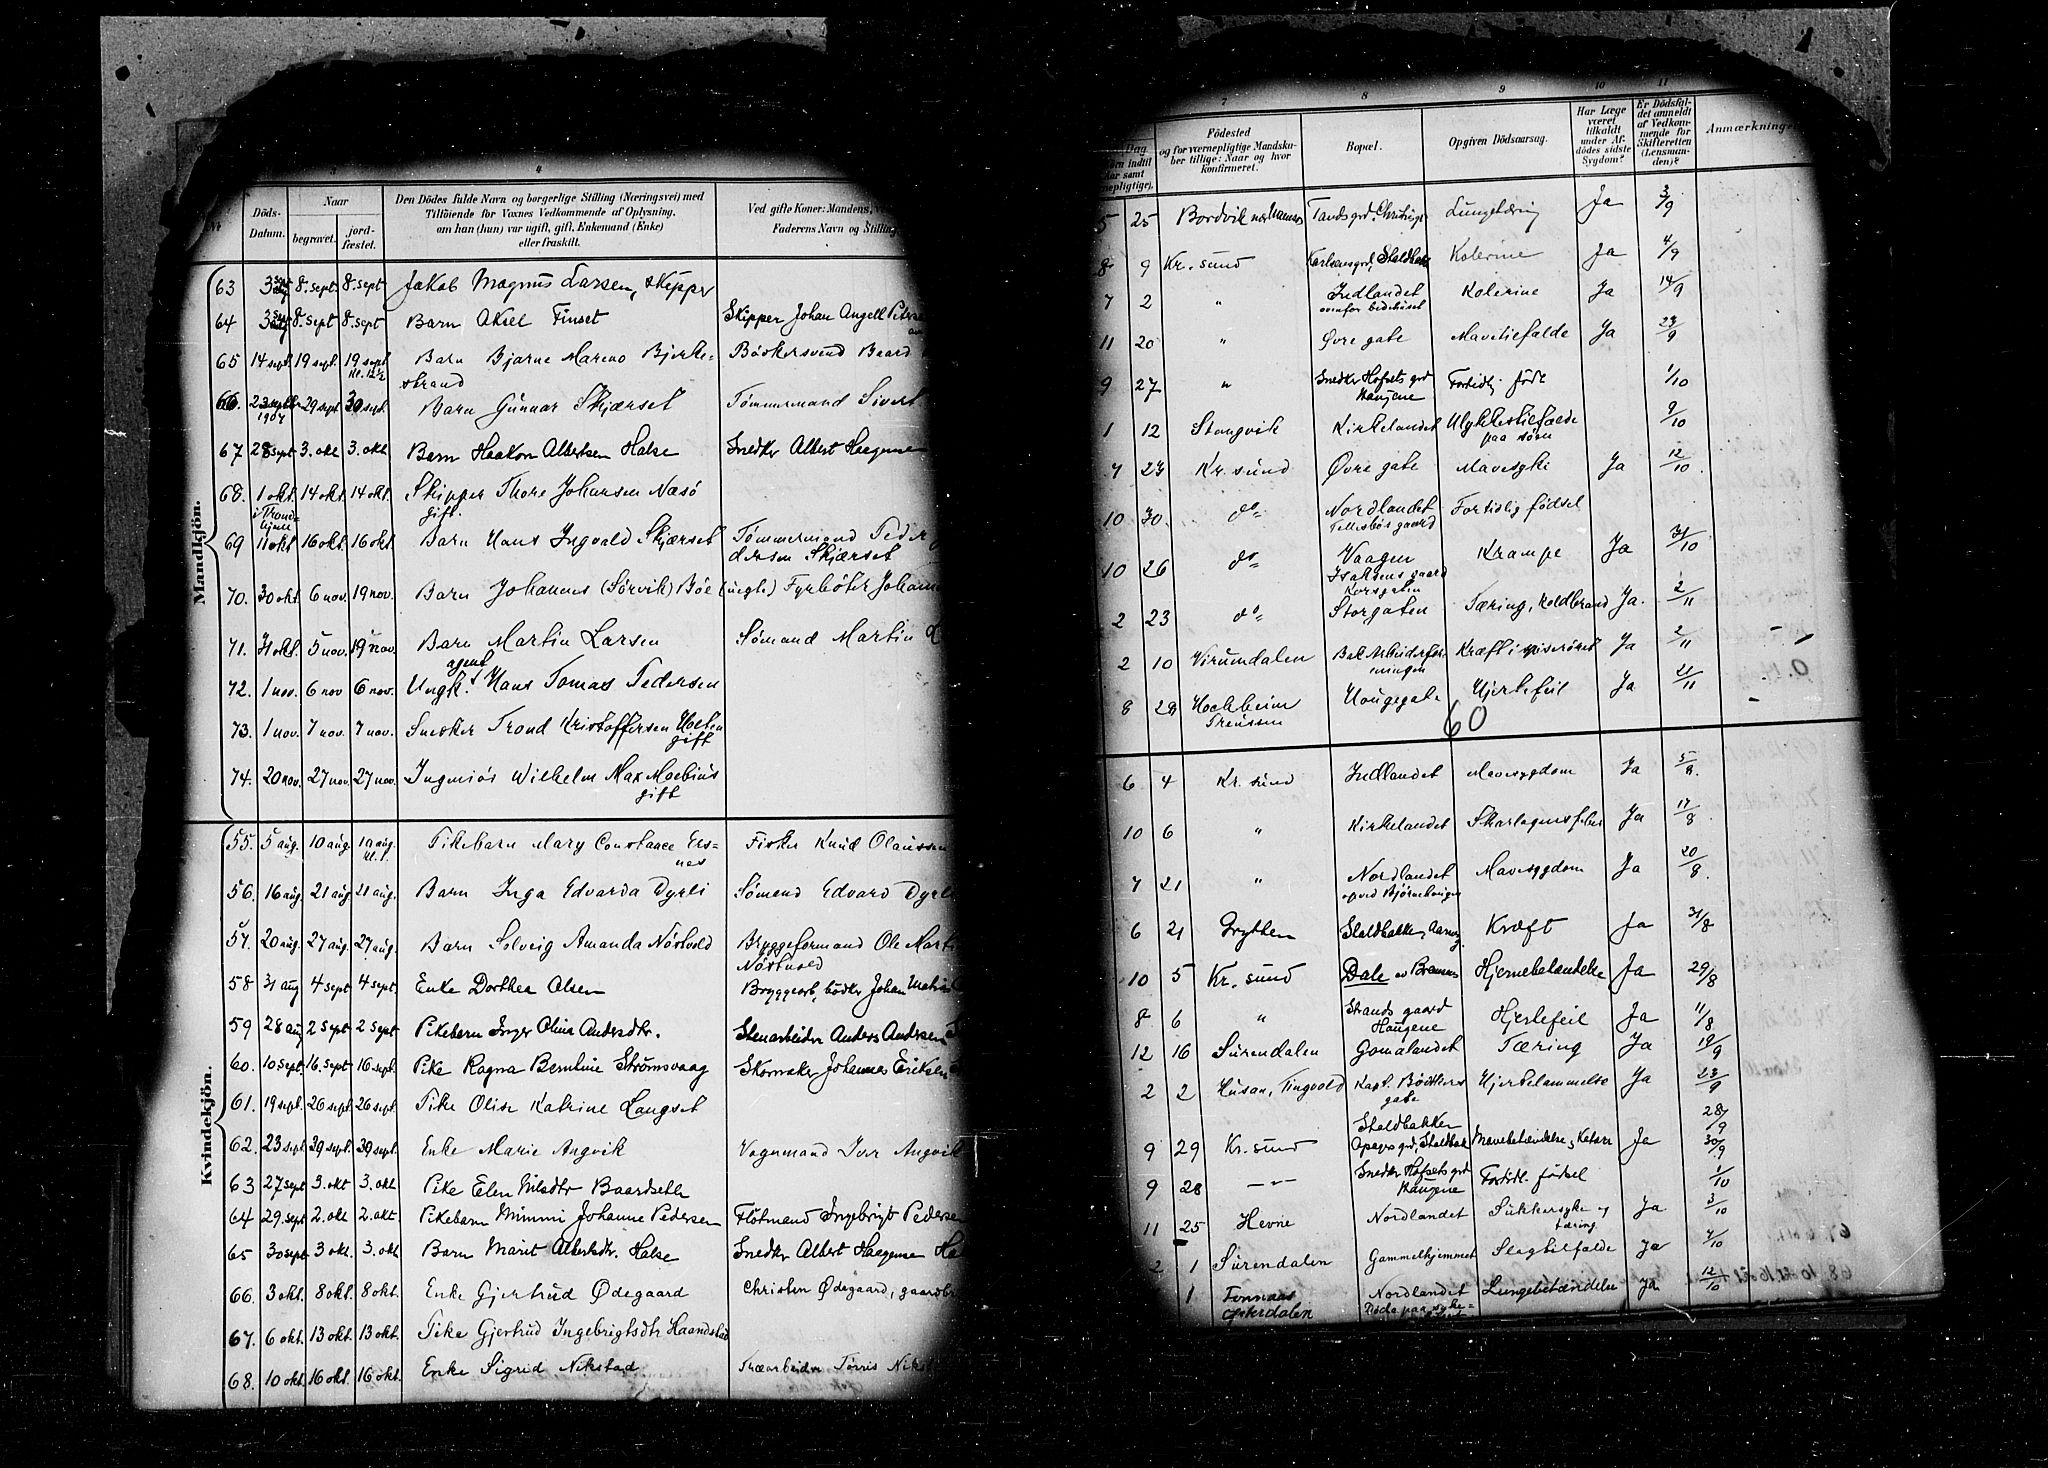 3
4
Nr.
Döds-
Datum.
Naar
begravet.
jord-
fæstet.
Den Dödes fulde Navn og borgerlige Stilling (Næringsvei) med
Tilföiende for Voxnes Vedkommende af Oplysning,
om han (hun) var ugift, gift, Enkemand (Enke)
eller fraskilt.
Ved gifte Koner: Mandens,
Faderens Navn og Stilling
Mandkjön.
63 8. sept 8. sept Jakob Magnus Larsen, skipper
64 8. sept 8. sept Barn Aksel Finset Skipper Johan Angell
65 14 sept. 19 sept. 19 sept. Barn Bjarne Mareno Bjerke- Bödkersvend Baard
Kl. 12½ strand
66. 23 septbr 29 sept 30 sept. Barn Gunnar Skjærset Tømmermand Sivert
1907
67 28 sept 3. okt 3. okt Barn Haakon Albertsen Halse Snedker Albert Haagense
68. 1 okt. 14 okt. 14 okt. Skipper Thore Johansen Næsö
i Trond-
hjem gift.
69 11 okt 16 okt. 16 okt. Barn Hans Ingvald Skjærset Tømmermand Peder
dersen Skjærset
70. 30 okt. 6 nov. 19 nov. Barn Johannes (Sørvik) Böe (uegte) Fyrbøter Johann
71. 31 okt. 5 nov. 19 nov. Barn Martin Larsen Sømand Martin L
agent
72. 1 nov. 6 nov 6 nov. Ungk. Hans Tomas Pedersen
73. 1 nov. 7 nov. 7 nov. Snedker Trond Kristoffersen Holten
gift
74. 20 nov. 27 nov. 27 nov. Ingeniör Wilhelm Max Moebius
gift
Kvindekjön.
55. 5 aug. 10 aug 10 aug. Pikebarn Mary Constance Ers= Fisker Knud Olaussen
kl. 1. nes
56. 16 aug. 21 aug 21 aug. Barn Inga Edvarda Dyrli Sømand Edvard Dyrli
57. 20 aug. 27 aug. 27 aug. Barn Solveig Amanda Nöstvold Bryggeformand Ole Mart
Nöstvold
58 31 aug 4 sept 4 sept. Enke Dorthea Olsen Bryggearb, bødker Johan
59 28 aug 2 sept 2 sept Pikebarn Inger Olina Andersdtr. Stenarbeider Anders Andersen
60. 10 sept. 16. sept 16 sept. Pike Ragna Berntine Strömsvaag Skomaker Johannes Eriksen
61. 19 sept. 26 sept. 26 sept. Pike Oline Katrine Langset
62. 23 sept. 29 sept. 29 sept. Enke Marie Angvik Vognmand Iver Angvik
63 27 sept 3. okt 3. okt Pike Elen Nilsdtr Baardseth
64 29. sept 2. okt 2. okt. Pikebarn Mimmi Johanne Pedersen Flötmand Ingebrigt Pedersen
65 30 sept 3 okt. 3. okt Barn Marit Albertsdtr. Halse Snedker Albert Haagense Ha
66. 3 okt. 8 okt. 8 okt. Enke Gjertrud Ødegaard Christen Ødegaard, gaardbr
67. 6 okt. 13 okt. 13 okt. Pike Gjertrud Ingebrigtsdtr Haandstad
68. 10 okt. 16 okt. 16 okt. Enke Sigrid Nikstad Træarbeider Tørris Nikst
7
8
9
10
11
Dag
Födested
og for værnepligtige Mandska-
ber tillige: Naar og hvor
konfirmeret.
Bopæl.
Opgiven Dödsaarsag.
Har Læge
været
tilkaldt
under Af-
dödes sidste
Sygdom?
Er Dödsfal-
det anmeldt
af Vedkom-
mende for
Skifteretten
(Lensman-
den)?
Anmærkninger
5 25 Lungetæring Ja 3/9
8 9 Kr. sund Karlsensgrd, Staldbak Kolerine Ja 4/9
7 2 " Indlandet Kolerine Ja 14/9
ovenfor bedehuset
11 20 " Øvre gate Mavetilfælde Ja 23/9
9 27 " Snedker Hofsets grd Fortidlig født 1/10
Haugene
1 12 Stangvik Kirkelandet Ulykkestilfælde 9/10
paa sjøen
7 23 Kr. sund Øvre gate Mavesyke Ja 12/10
10 30. do Nordlandet Fortidlig fødsel
gaard
10 26 do Vaagen Krampe Ja 31/10
Isaksens gaard
Korsgaten
2 23 do Storgaten Tæring, Koldbrand Ja. 2/11
2 10 Virumdalen Kræft i spiserøret Ja 2/11
8 29 Hochheim Haugegate Hjertefeil Ja 21/11
Preussen
60
6 4 Kr. sund Indlandet Mavesygdom Ja 5/8.
10 6 " Kirkelandet Skarlagensfeber Ja 17/8
7 21 " Nordlandet Mavesygdom Ja 20/8.
opved Bjørnehaugen
6 21 Grytten Staldbakken, Kræft Ja 31/8
10 5 Kr. sund Dale Hjernebetændelse Ja 29/8
8 6 " Strands gaard Hjertefeil Ja 11/8
Haugene
12 16 Surendalen Gomalandet Tæring Ja 19/9
2 2 Husan, Tingvold Kapt. Bödtkers Hjertelammelse Ja 23/9
gate
Staldbakken 28/9
9 29 Kr. sund Mavebetændelse, Katarr Ja 30/9
9 28 Snedker Hofsets grd Fortidl. fødsel 1/10
Haugene
11 25 Hevne Nordlandet Sukkersyke og Ja 3/10
tæring
2 1 Surendalen Gammelhjemmet Slagtilfælde Ja 7/10
1 Tønnaas Nordlandet Lungebetændelse Ja 12/10
Østerdalen